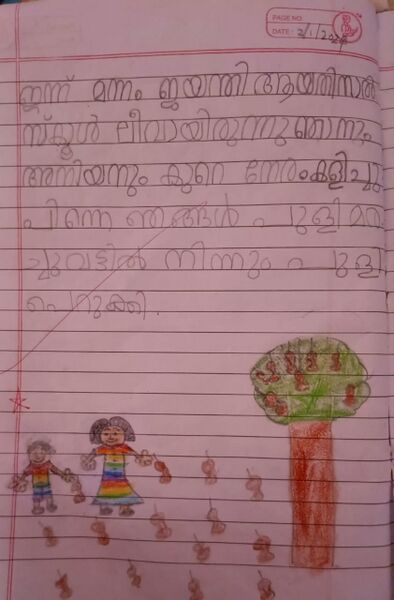 PAGE NO:
DATE: 2/1/2024
ഇന്ന് മന്നം ജയന്തി ആയതിനാൽ
സ്കൂൾ ലീവായിരുന്നു ഞാനും
അനിയനും കുറെ നേരം കളിച്ചു
പിന്നെ ഞങ്ങൾ പുളി മര
ച്ചുവട്ടിൽ നിന്നും പുളി
പെറുക്കി.